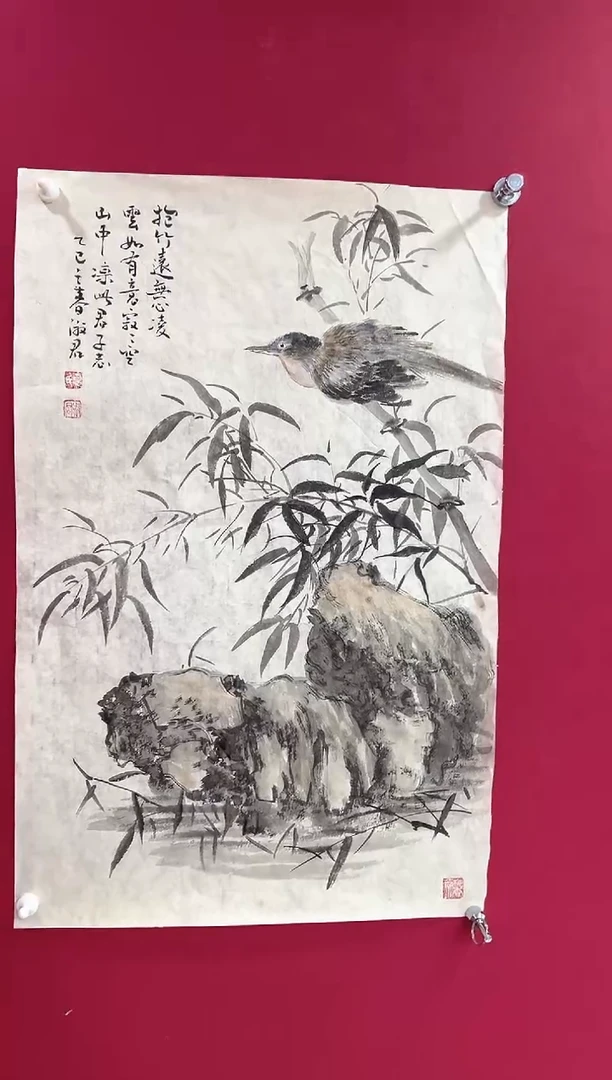 抱竹遠無心凌
雲如有意寂〻空
山中凛此君子志
乙巳之春淑君